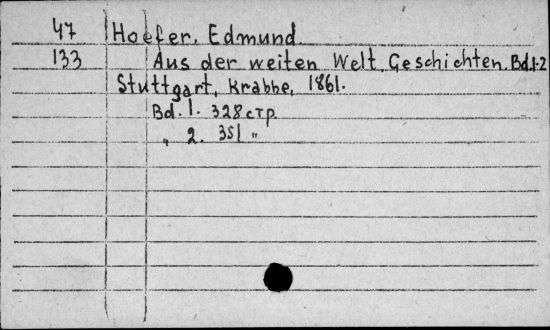 47 Hoefer, Edmund.
133 Aus der weiten Welt. Geschichten. Bd.1-2
Stuttgart, Krabbe, 1861.
Bd. 1. 328 стр.
„ 2. 351 "